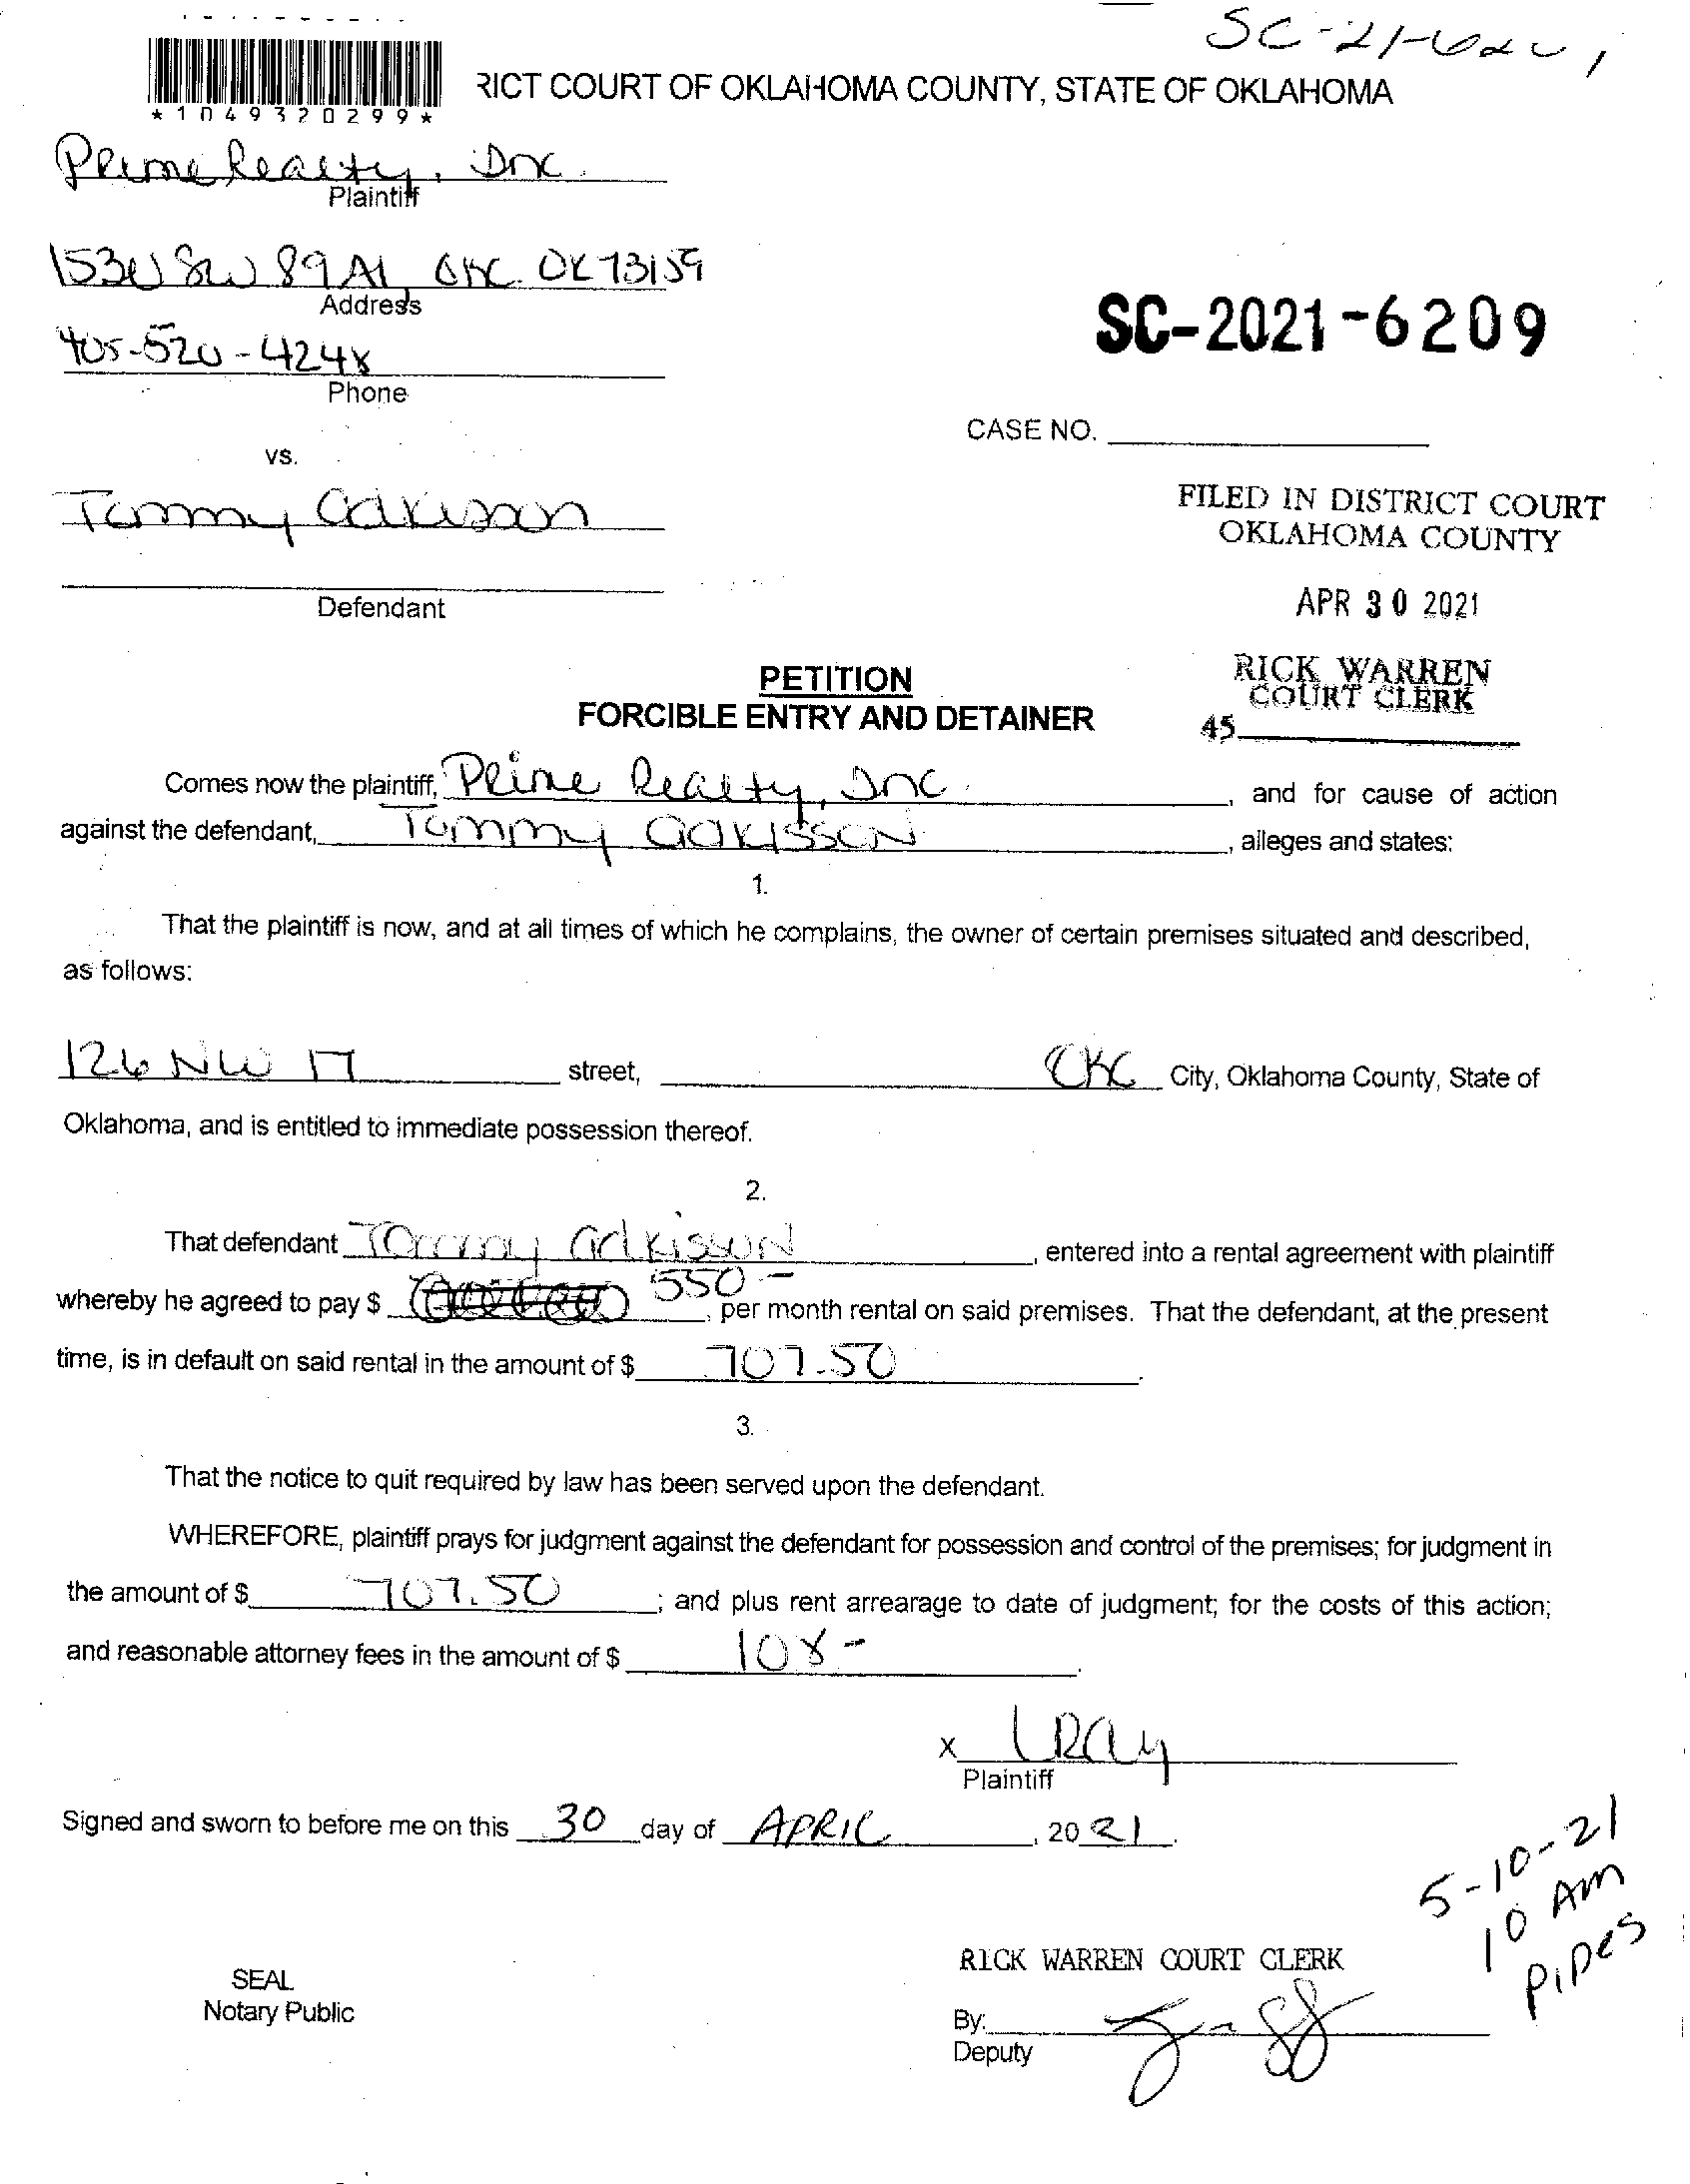 SC-21-620
*1049320299*
RICT COURT OF OKLAHOMA COUNTY, STATE OF OKLAHOMA
Prime Realty, Inc.
Plaintiff
SW 89 OKC. OK 73159
Address
405-520-4248
Phone
SC-2021-6209
CASE NO.
vs.
Tommy Adkisson
FILED IN DISTRICT COURT
OKLAHOMA COUNTY
Defendant
APR 30 2021
PETITION
RICK WARREN
COURT CLERK
FORCIBLE ENTRY AND DETAINER
45
Comes now the plaintiff, Prime Realty, Inc. , and for cause of action
against the defendant, Tommy Adkisson , alleges and states:
1.
That the plaintiff is now, and at all times of which he complains, the owner of certain premises situated and described,
as follows:
126 NW 17 street, OKC City, Oklahoma County, State of
Oklahoma, and is entitled to immediate possession thereof.
2.
That defendant Tommy Adkisson , entered into a rental agreement with plaintiff
whereby he agreed to pay $ 550 - , per month rental on said premises. That the defendant, at the present
time, is in default on said rental in the amount of $ 707.50 .
3.
That the notice to quit required by law has been served upon the defendant.
WHEREFORE, plaintiff prays for judgment against the defendant for possession and control of the premises; for judgment in
the amount of $ 707.50 ; and plus rent arrearage to date of judgment; for the costs of this action;
and reasonable attorney fees in the amount of $ 108 - .
X LRay
Plaintiff
Signed and sworn to before me on this 30 day of APRIL , 20 21 .
5-10-21
10 AM
Pipes
RICK WARREN COURT CLERK
SEAL
Notary Public
By:
Deputy